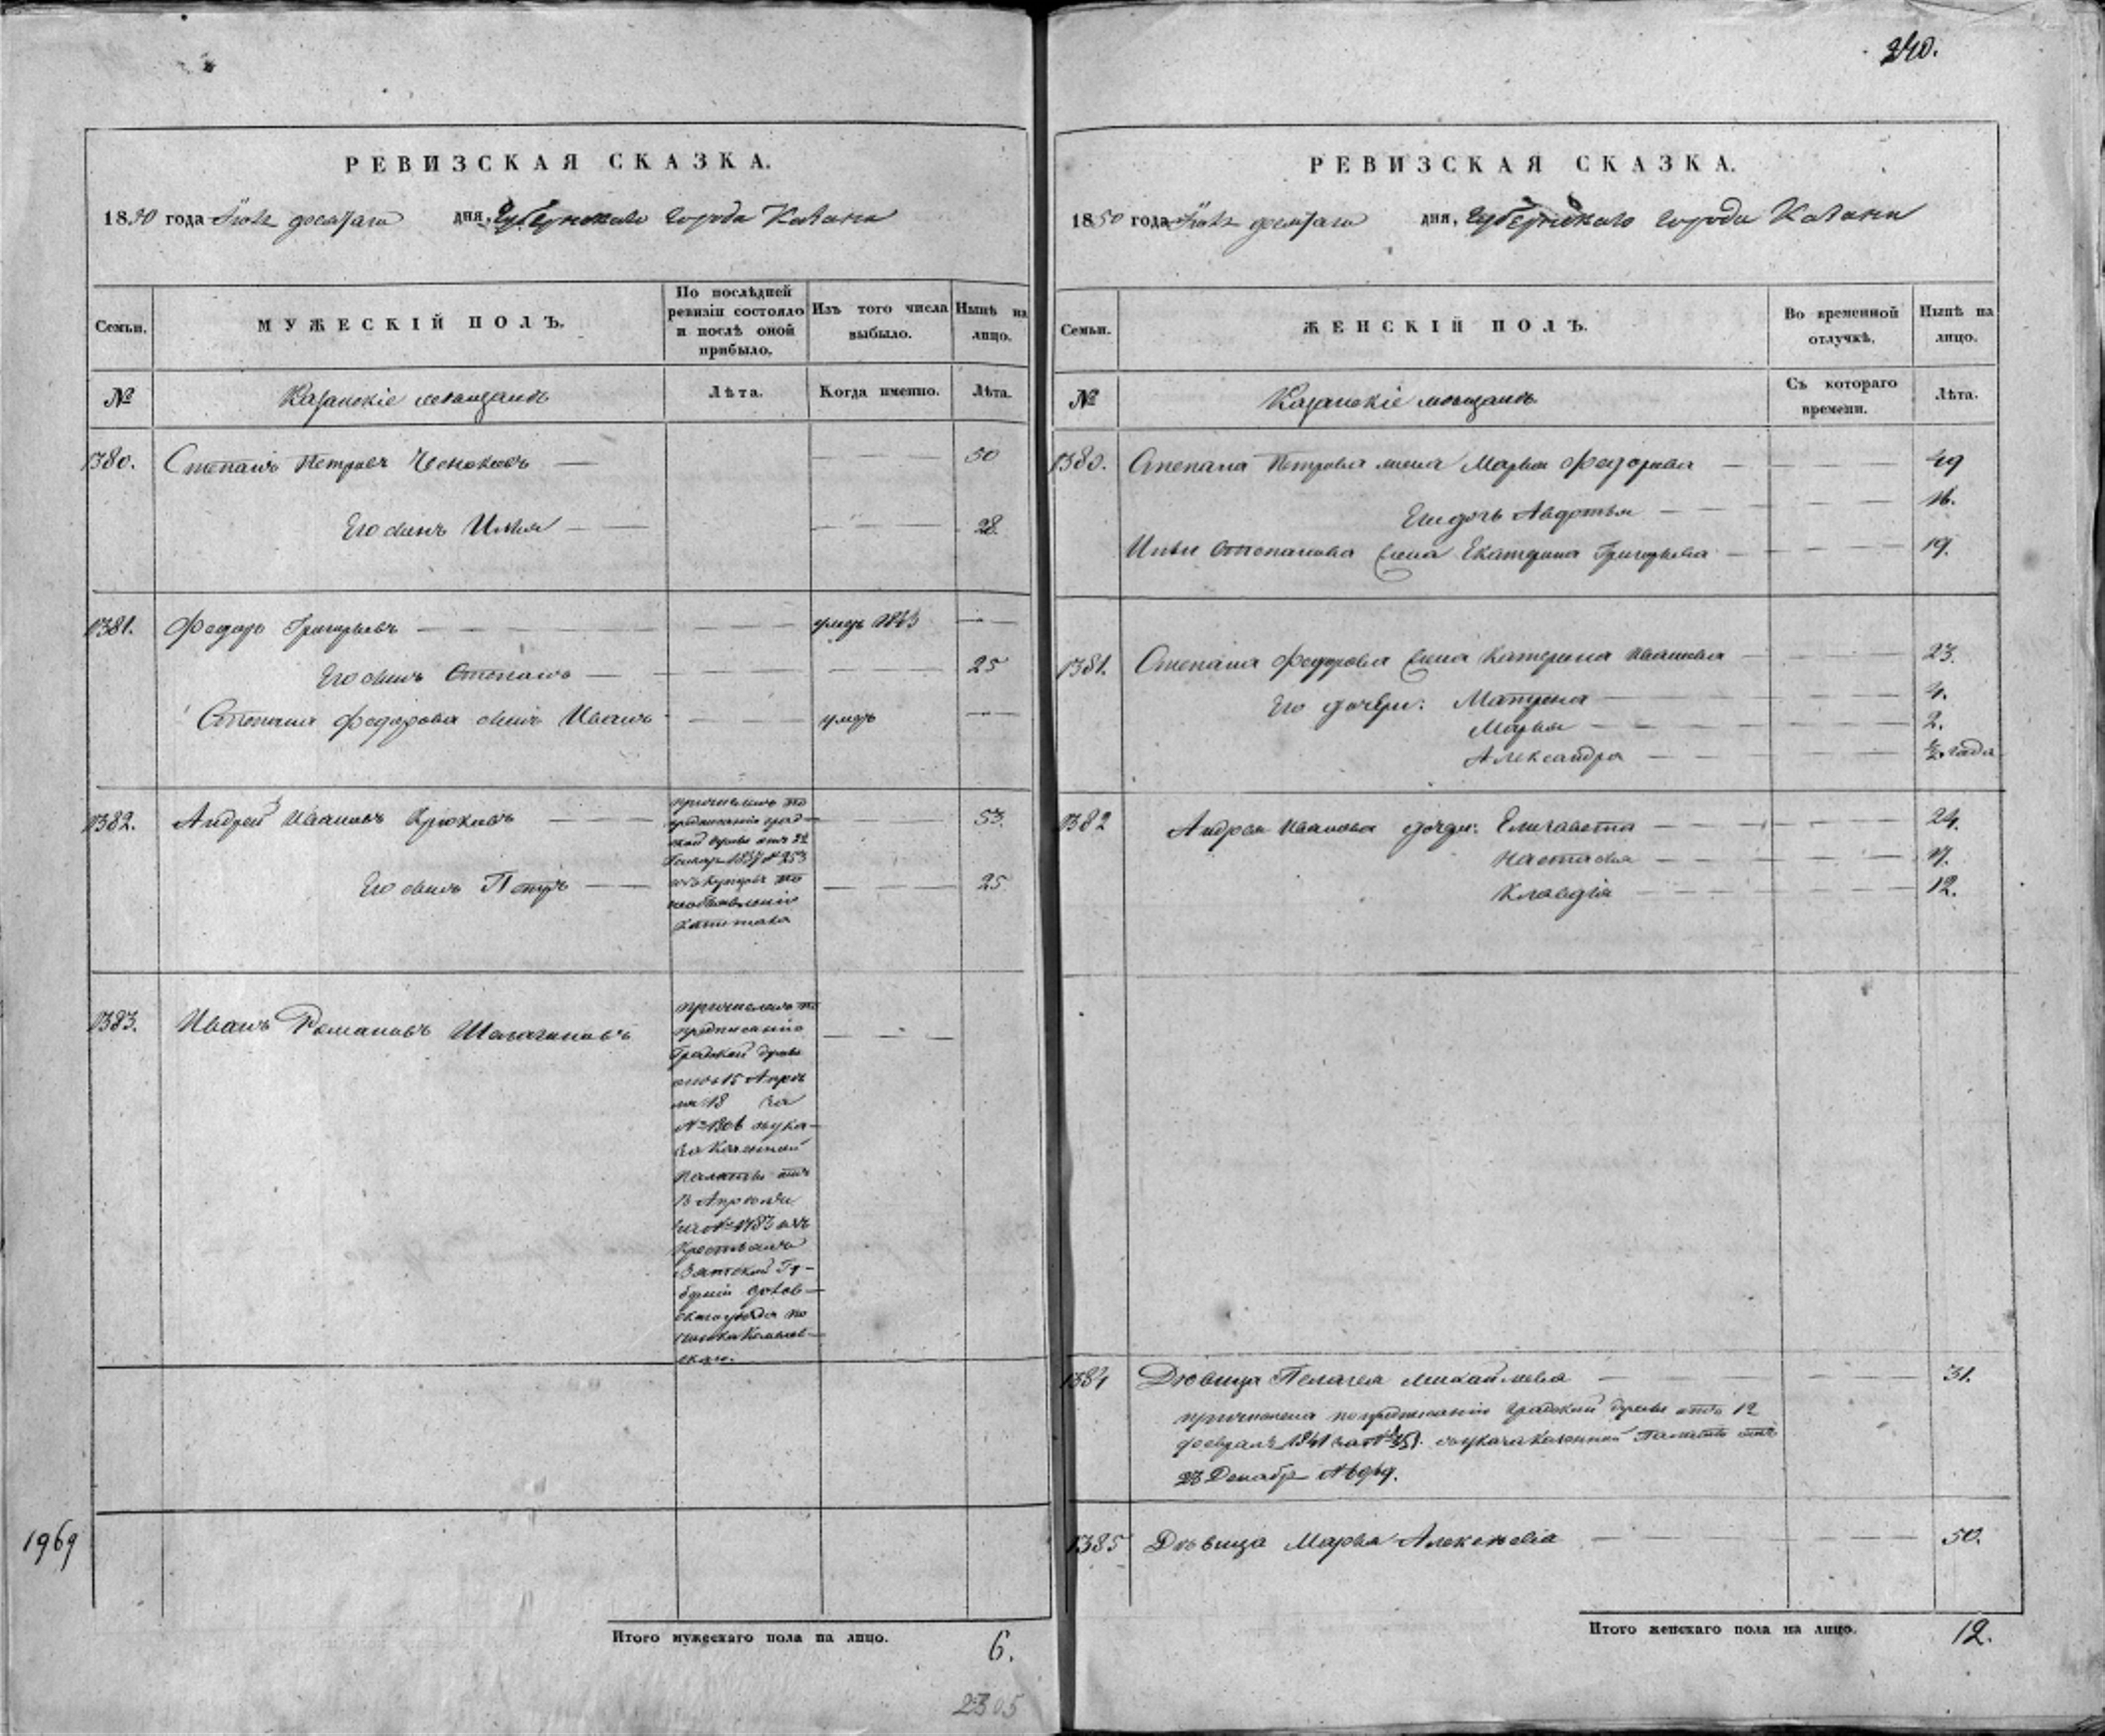 240.
РЕВИЗСКАЯ СКАЗКА.
1850 года дня, Губернскаго города Казани
Семьи.
МУЖЕСКІЙ ПОЛЪ.
По послѣдней
ревизіи состояло
и послѣ оной
прибыло.
Изъ того числа
выбыло.
Нынѣ на
лицо.
№
Казанскіе мѣщане
Лѣта.
Когда именно.
Лѣта.
1380.
Степанъ Петровъ
50
Его сынъ Илья
28.
1381.
Федоръ Григорьевъ
умеръ 1843
Его сынъ Степанъ
25
Степана Федорова сынъ Иванъ
умеръ
1382.
Андрей Ивановъ Крюковъ
53.
причисленъ по
предписанію град-
ской думы отъ 22
1837 № 253
изъ купцовъ по
необъявленію
капитала
Его сынъ Петръ
25
1383.
Иванъ Романовъ
причисленъ по
предписанію
Градской думы
отъ 15 Апрѣ
ля 18 за
№ 1306 и ука-
за Казенной
Палаты отъ
Апрѣля
за № 1783 изъ
крестьянъ
Вятской Гу-
берніи Орлов-
скаго уѣзда
1969
Итого мужескаго пола на лицо.
6.
2305
РЕВИЗСКАЯ СКАЗКА.
1850 года дня, Губернскаго города Казани
Семьи.
ЖЕНСКІЙ ПОЛЪ.
Во временной
отлучкѣ.
Нынѣ на
лицо.
№
Казанскіе мѣщане
Съ котораго
времени.
Лѣта.
1380.
Степана Петрова жена Марья Федорова
49
Ея дочь Авдотья
16.
Ильи Степанова жена Екатерина Григорьева
19.
1381.
Степана Федорова жена Катерина Иванова
23.
Его дочери: Матрена
4.
Марья
2.
Александра
½ года
1382
Андрея Иванова дочери: Елизавета
24.
Настасья
17.
Клавдія
12.
1384
Дѣвица Пелагея Михайлова
31.
причислена по предписанію Градской думы отъ 12
февраля 1841 за № указа Казенной Палаты отъ
23 Декабр
1385
Дѣвица Марья Алексѣева
50.
Итого женскаго пола на лицо.
12.